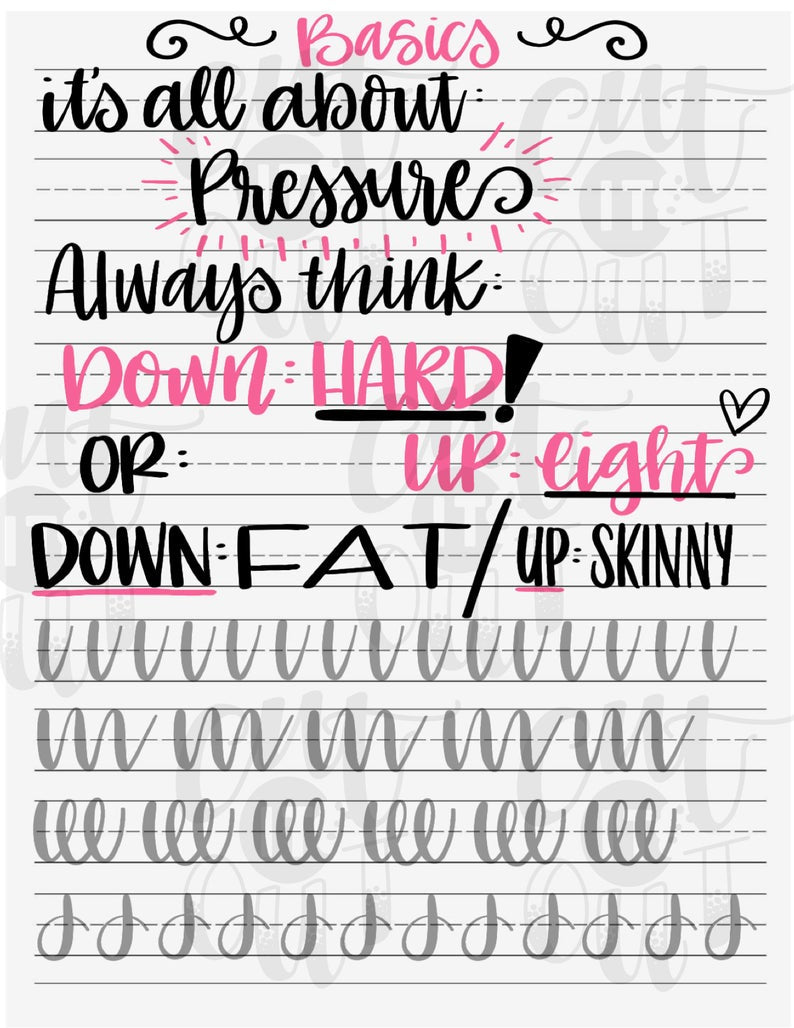 Basics
it's all about:
Pressure
Always think:
Down: HARD!
OR: UP: light
DOWN: FAT / UP: SKINNY
CUT IT OUT